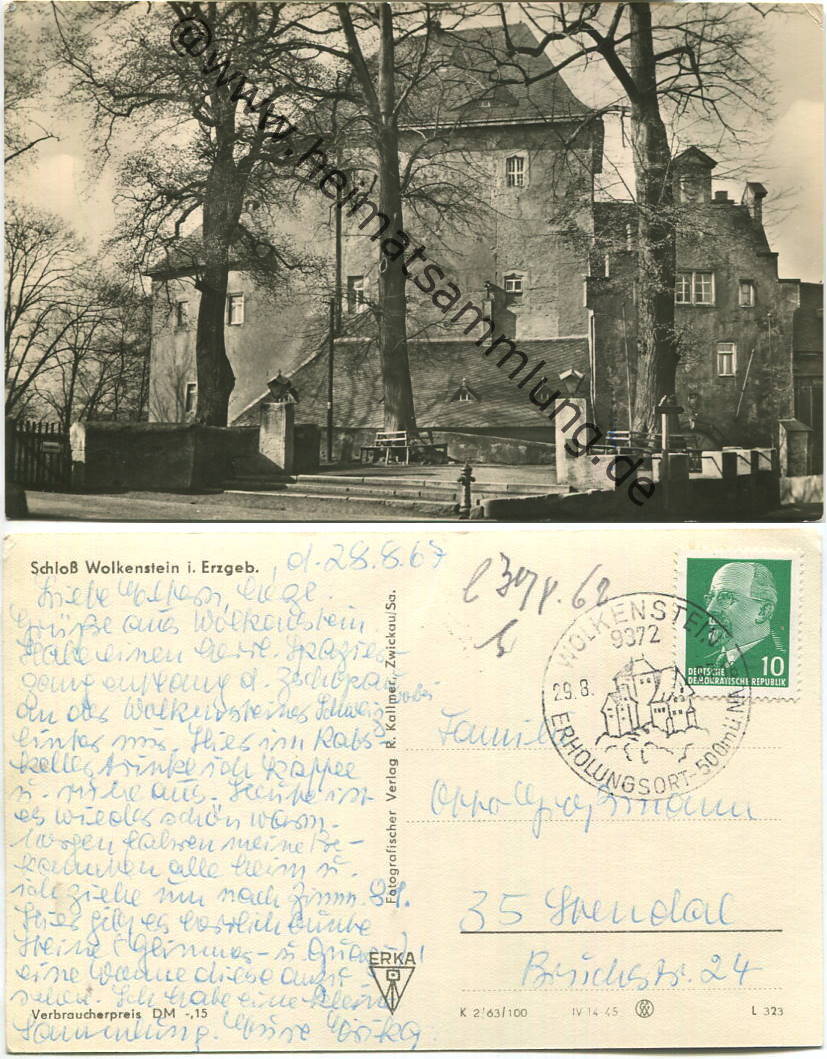 @www.heimatsammlung.de
Schloß Wolkenstein i. Erzgeb. , d. 28.8.67
Grüße aus Wolkenstein.
Habe einen herrl. Spazier-
gang entlang d. Zschopau
an der Wolkensteiner Schweiz
hinter mir. Hier im Rats-
keller trinke ich Kaffee
u. ruhe aus. Heute ist
es wieder schön warm.
Morgen fahren meine Be-
kannten alle heim u.
ich ziehe um nach Zimm.
Hier gibt es herrlich bunte
Steine (Glimmer- u. Quarz)
eine Wonne diese anzu-
sehen. Ich habe eine kleine
Sammlung. Eure Erika.
Verbraucherpreis DM -,15
Fotografischer Verlag R. Kallmer, Zwickau/Sa.
ERKA
WOLKENSTEIN
9372
29.8.
ERHOLUNGSORT-500m ü. NN
DEUTSCHE
DEMOKRATISCHE REPUBLIK
10
Familie
Otto Großmann
35 Stendal
Bruchstr. 24
K 2/63/100 IV-14-45 L 323